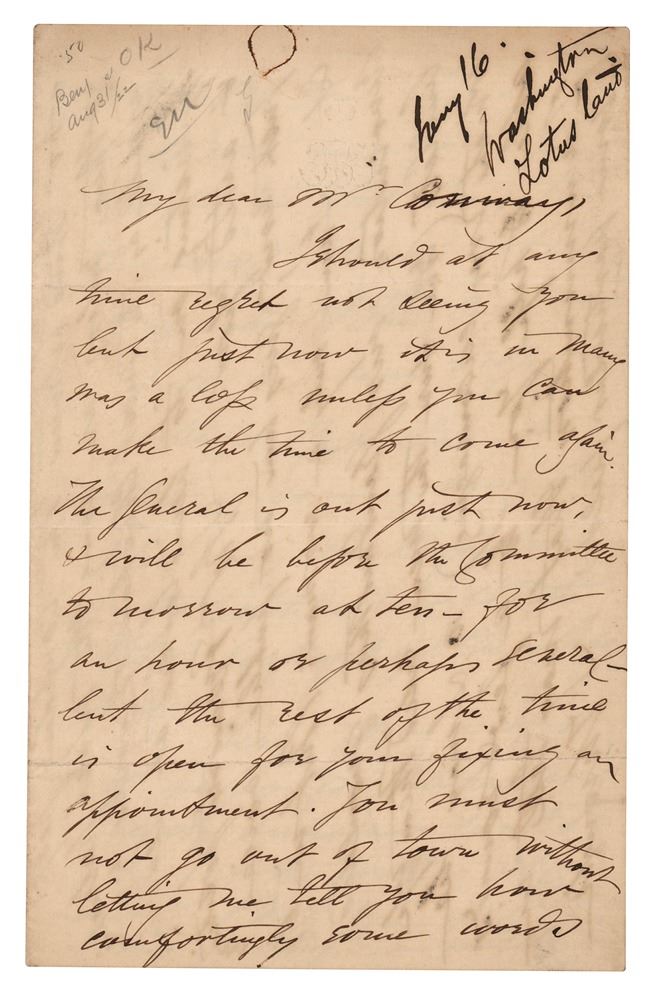 .50
OK
Benj
Aug 31/22
Jany 16.
Washington
Lotus Land
My dear Mr Conway,
I should at any
time regret not seeing you
but just now it is in many
was a loss unless you can
make the time to come again.
The General is out just now,
& will be before the Committee
tomorrow at ten - for
an hour or perhaps several -
but the rest of the time
is open for your fixing an
appointment. You must
not go out of town without
letting me tell you how
comfortingly some words